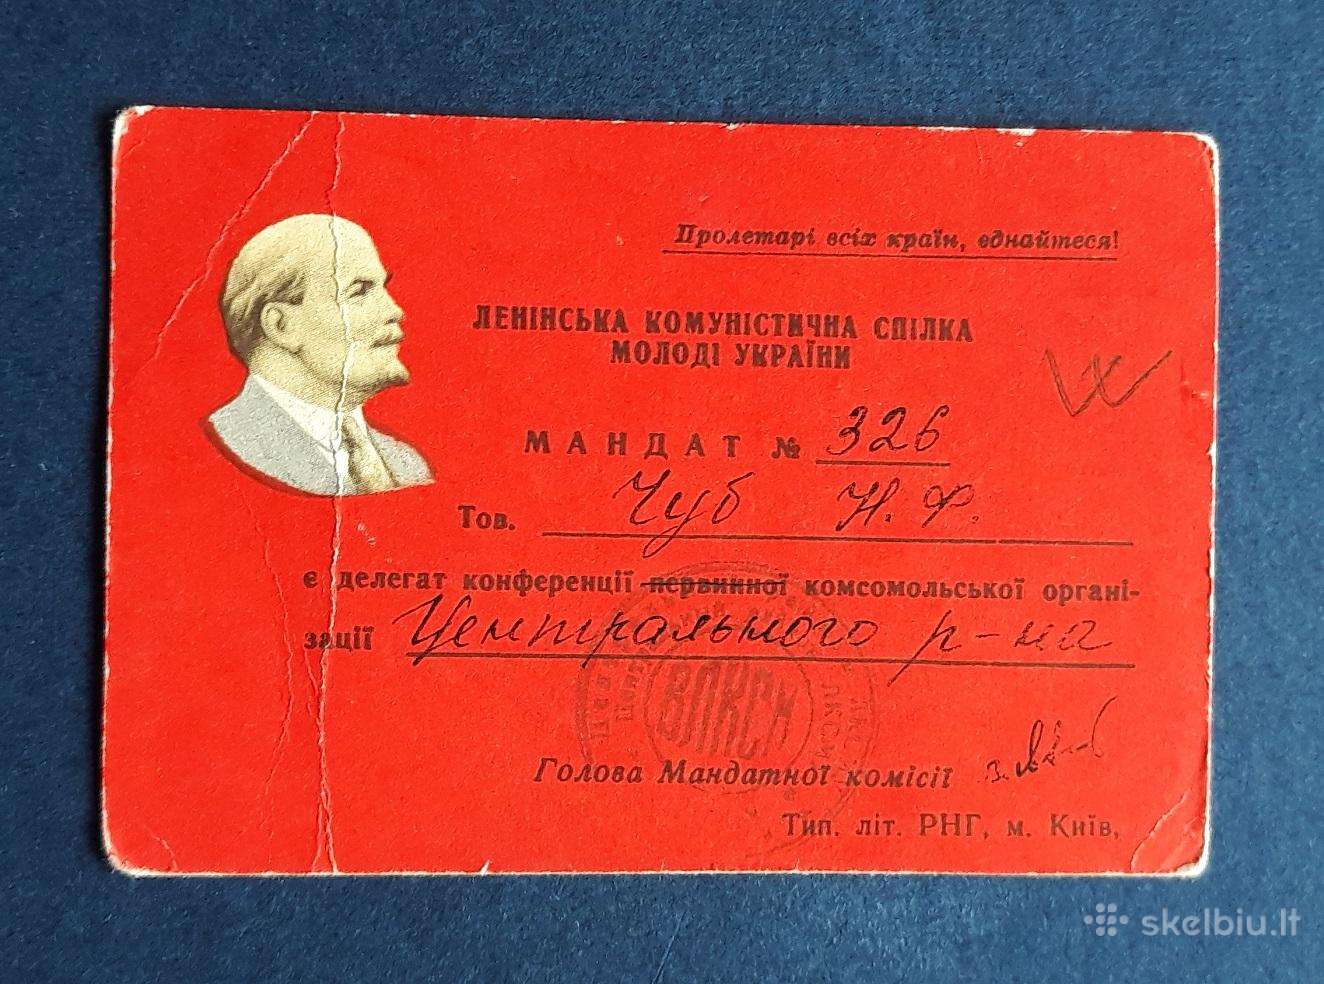 Пролетарі всіх країн, єднайтеся!
ЛЕНІНСЬКА КОМУНІСТИЧНА СПІЛКА
МОЛОДІ УКРАЇНИ
МАНДАТ № 326
Тов. Чуб Н. Ф.
є делегат конференції первинної комсомольської органі-
зації Центрального р-на
ВЛКСМ
Голова Мандатної комісії
Тип. літ. РНГ, м. Київ,
skelbiu.lt